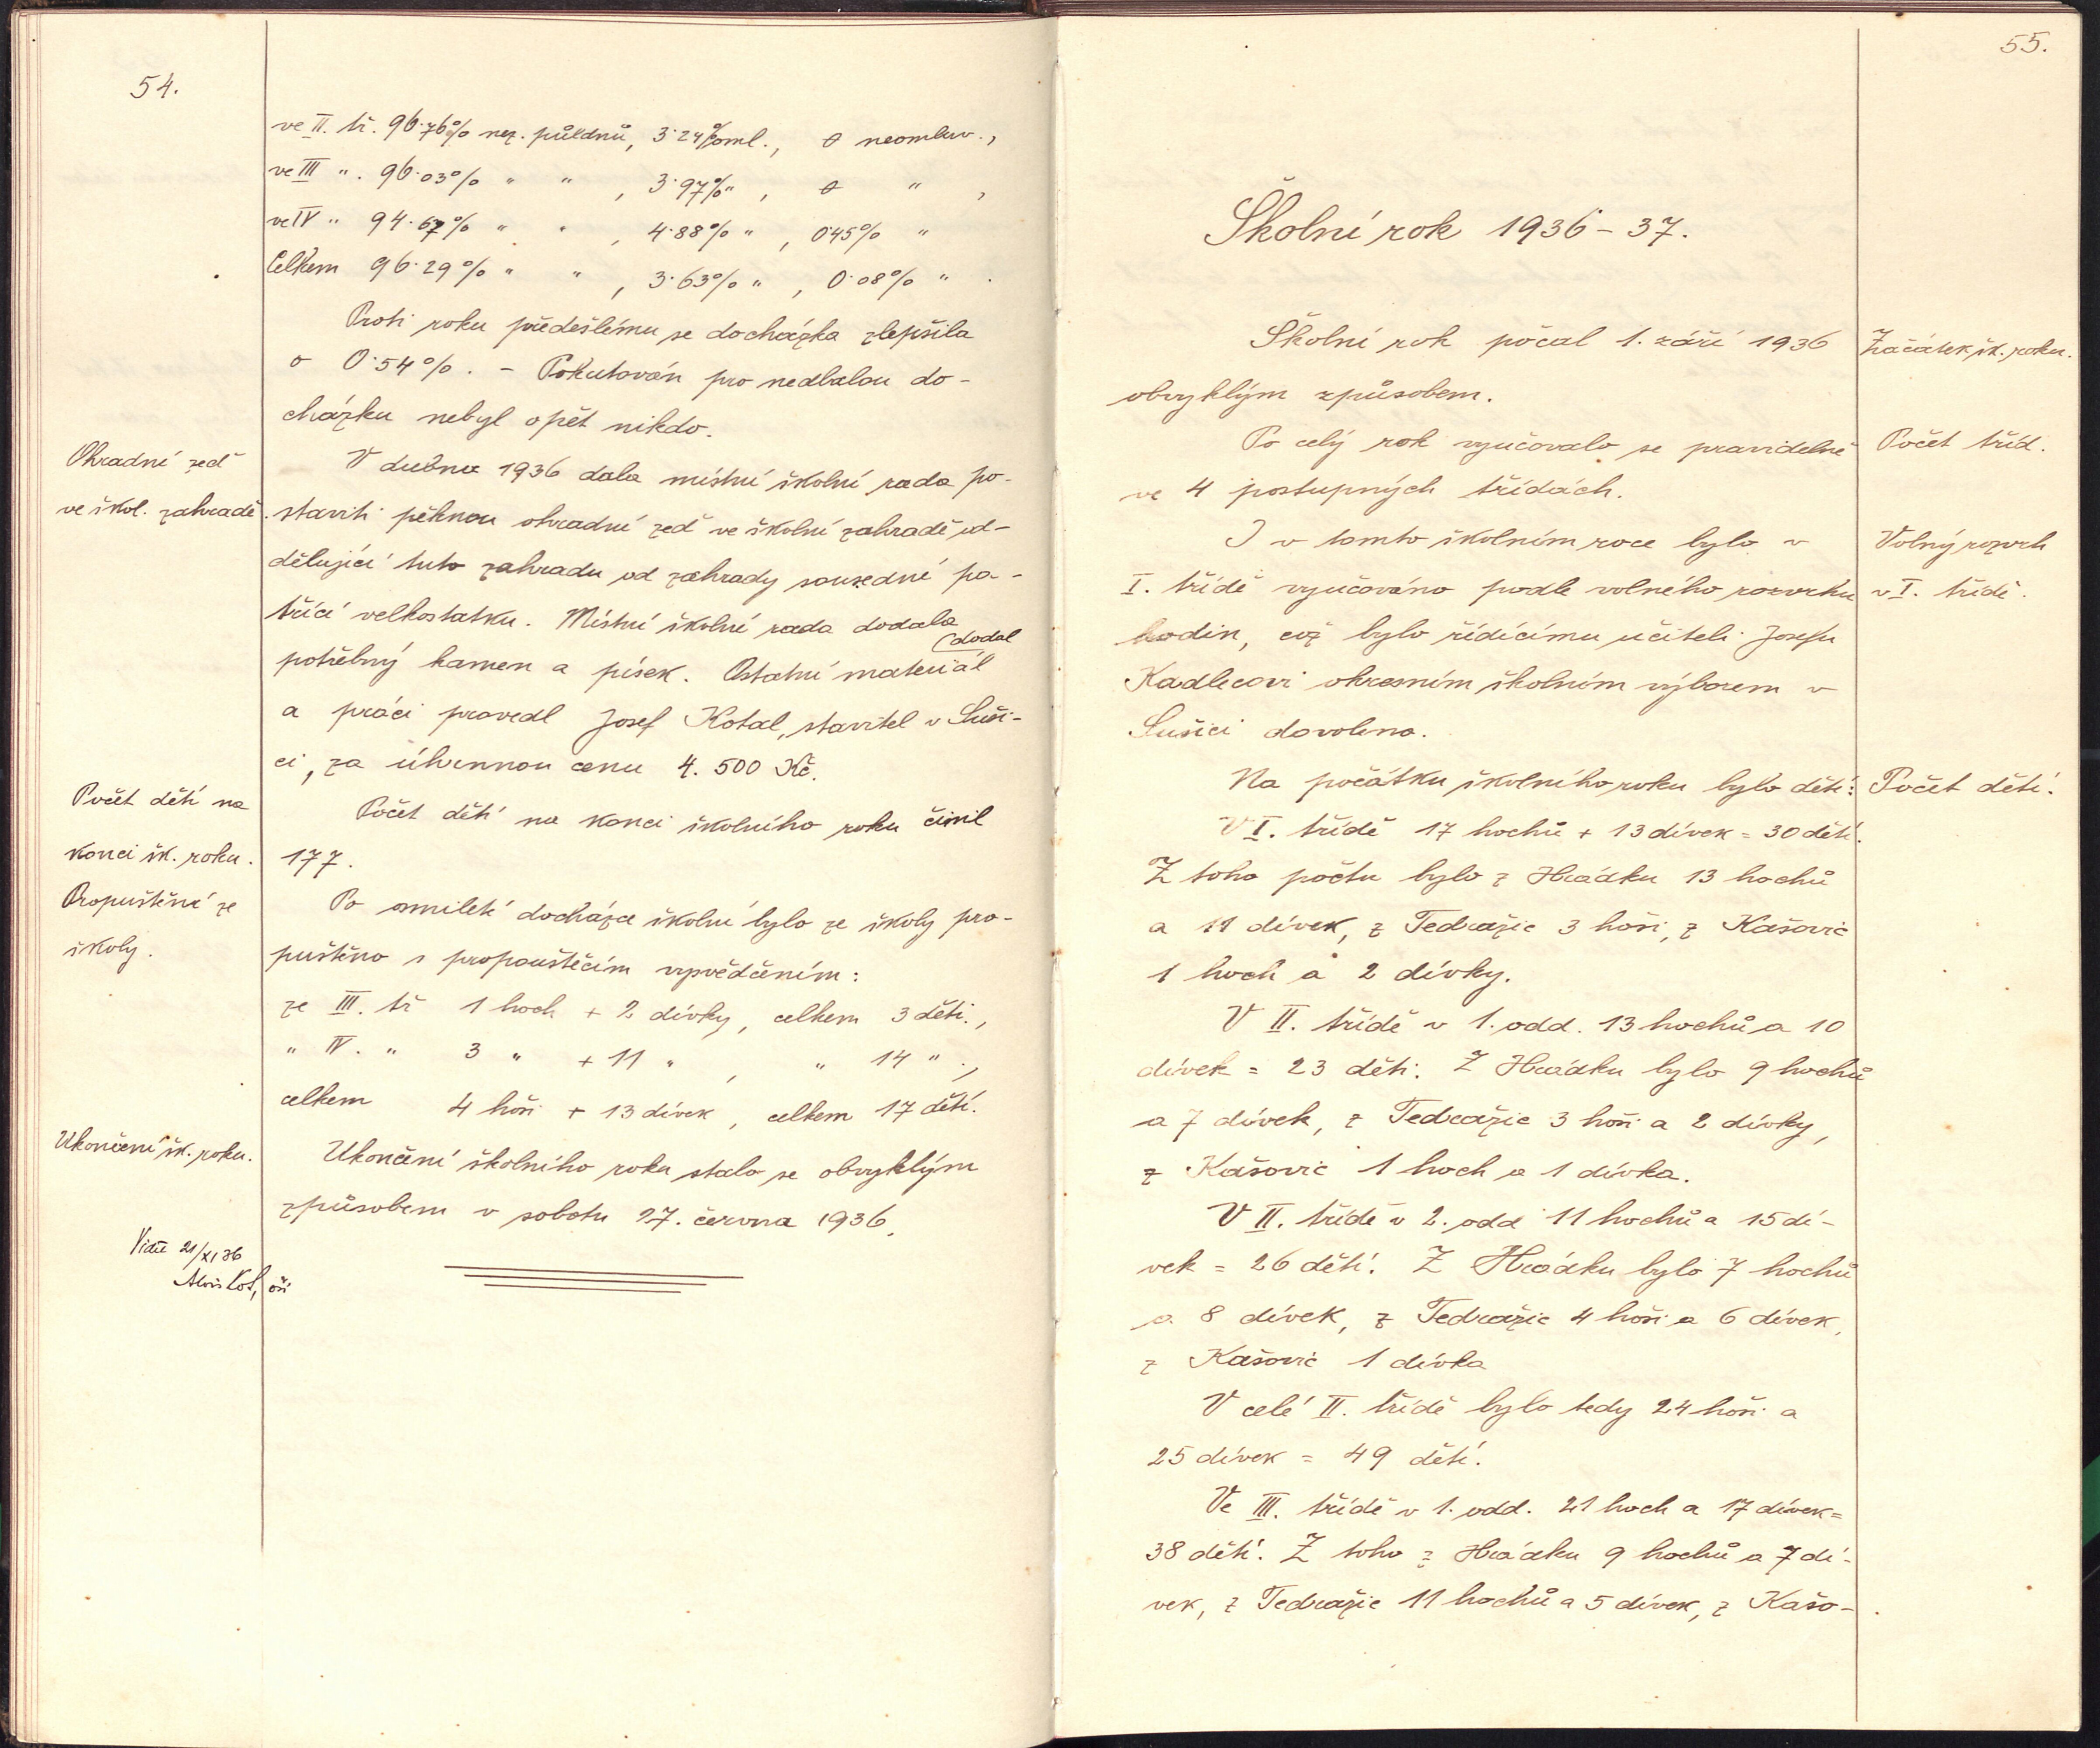 54.
ve II. tř. 96·76% nez. půldnů, 3·24% oml., 0 neomluv.,
ve III „ . 96·03% „ „ , 3·97% „ , 0 „ ,
ve IV „ 94·67% „ „ , 4·88% „ , 0·45% „
Celkem 96·29% „ „ , 3·63% „ , 0·08% „ .
Proti roku předešlému se docházka zlepšila
o 0·54%. – Pokutován pro nedbalou do-
cházku nebyl opět nikdo.
Ohradní zeď
ve škol. zahradě.
V dubnu 1936 dala místní školní rada po-
staviti pěknou ohradní zeď ve školní zahradě od-
dělující tuto zahradu od zahrady sousední pa-
třící velkostatku. Místní školní rada dodala
(dodal
potřebný kamen a písek. Ostatní materiál
a práci provedl Josef Kotal, stavitel v Suši-
ci, za úhrnnou cenu 4.500 Kč.
Počet dětí na
konci šk. roku.
Počet dětí na konci školního roku činil
177.
Propuštění ze
školy.
Po osmileté docházce školní bylo ze školy pro-
puštěno s propouštěcím vysvědčením:
ze III. tř 1 hoch + 2 dívky, celkem 3 děti.,
„ IV. „ 3 „ + 11 „ , „ 14 „ .,
celkem 4 hoši + 13 dívek, celkem 17 dětí.
Ukončení šk. roku.
Ukončení školního roku stalo se obvyklým
způsobem v sobotu 27. června 1936.
Viděl 21/XI 36
Alois Kot, oši
55.
Školní rok 1936 – 37.
Školní rok počal 1. září 1936
Začátek šk. roku.
obvyklým způsobem.
Po celý rok vyučovalo se pravidelně
Počet tříd.
ve 4 postupných třídách.
I v tomto školním roce bylo v
Volný rozvrh
I. třídě vyučováno podle volného rozvrhu
v I. třídě.
hodin, což bylo řídícímu učiteli Josefu
Kadlecovi okresním školním výborem v
Sušici dovoleno.
Na počátku školního roku bylo dětí:
Počet dětí.
V I. třídě 17 hochů + 13 dívek = 30 dětí.
Z toho počtu bylo z Hrádku 13 hochů
a 11 dívek, z Tedražic 3 hoši, z Kašovic
1 hoch a 2 dívky.
V II. třídě v 1. odd. 13 hochů a 10
dívek = 23 dětí. Z Hrádku bylo 9 hochů
a 7 dívek, z Tedražic 3 hoši a 2 dívky,
z Kašovic 1 hoch a 1 dívka.
V II. třídě v 2. odd 11 hochů a 15 dí-
vek = 26 dětí. Z Hrádku bylo 7 hochů
a 8 dívek, z Tedražic 4 hoši a 6 dívek,
z Kašovic 1 dívka
V celé II. třídě bylo tedy 24 hoši a
25 dívek = 49 dětí.
Ve III. třídě v 1. odd. 21 hoch a 17 dívek =
38 dětí. Z toho z Hrádku 9 hochů a 7 dí-
vek, z Tedražic 11 hochů a 5 dívek, z Kašo-